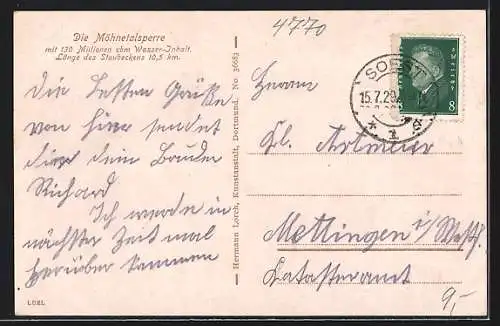 4770
Die Möhnetalsperre
mit 130 Millionen cbm Wasser-Inhalt.
Länge des Staubeckens 10,5 km.
Die besten Grüße
von hier sendet
dir dein Bruder
Richard
Ich werde in
nächster Zeit mal
herüber kommen
LUEL
Hermann Lorch, Kunstanstalt, Dortmund. No 36683
SOEST
15.7.29
8
Herrn
Mettingen i/Westf.
Katasteramt
9,-